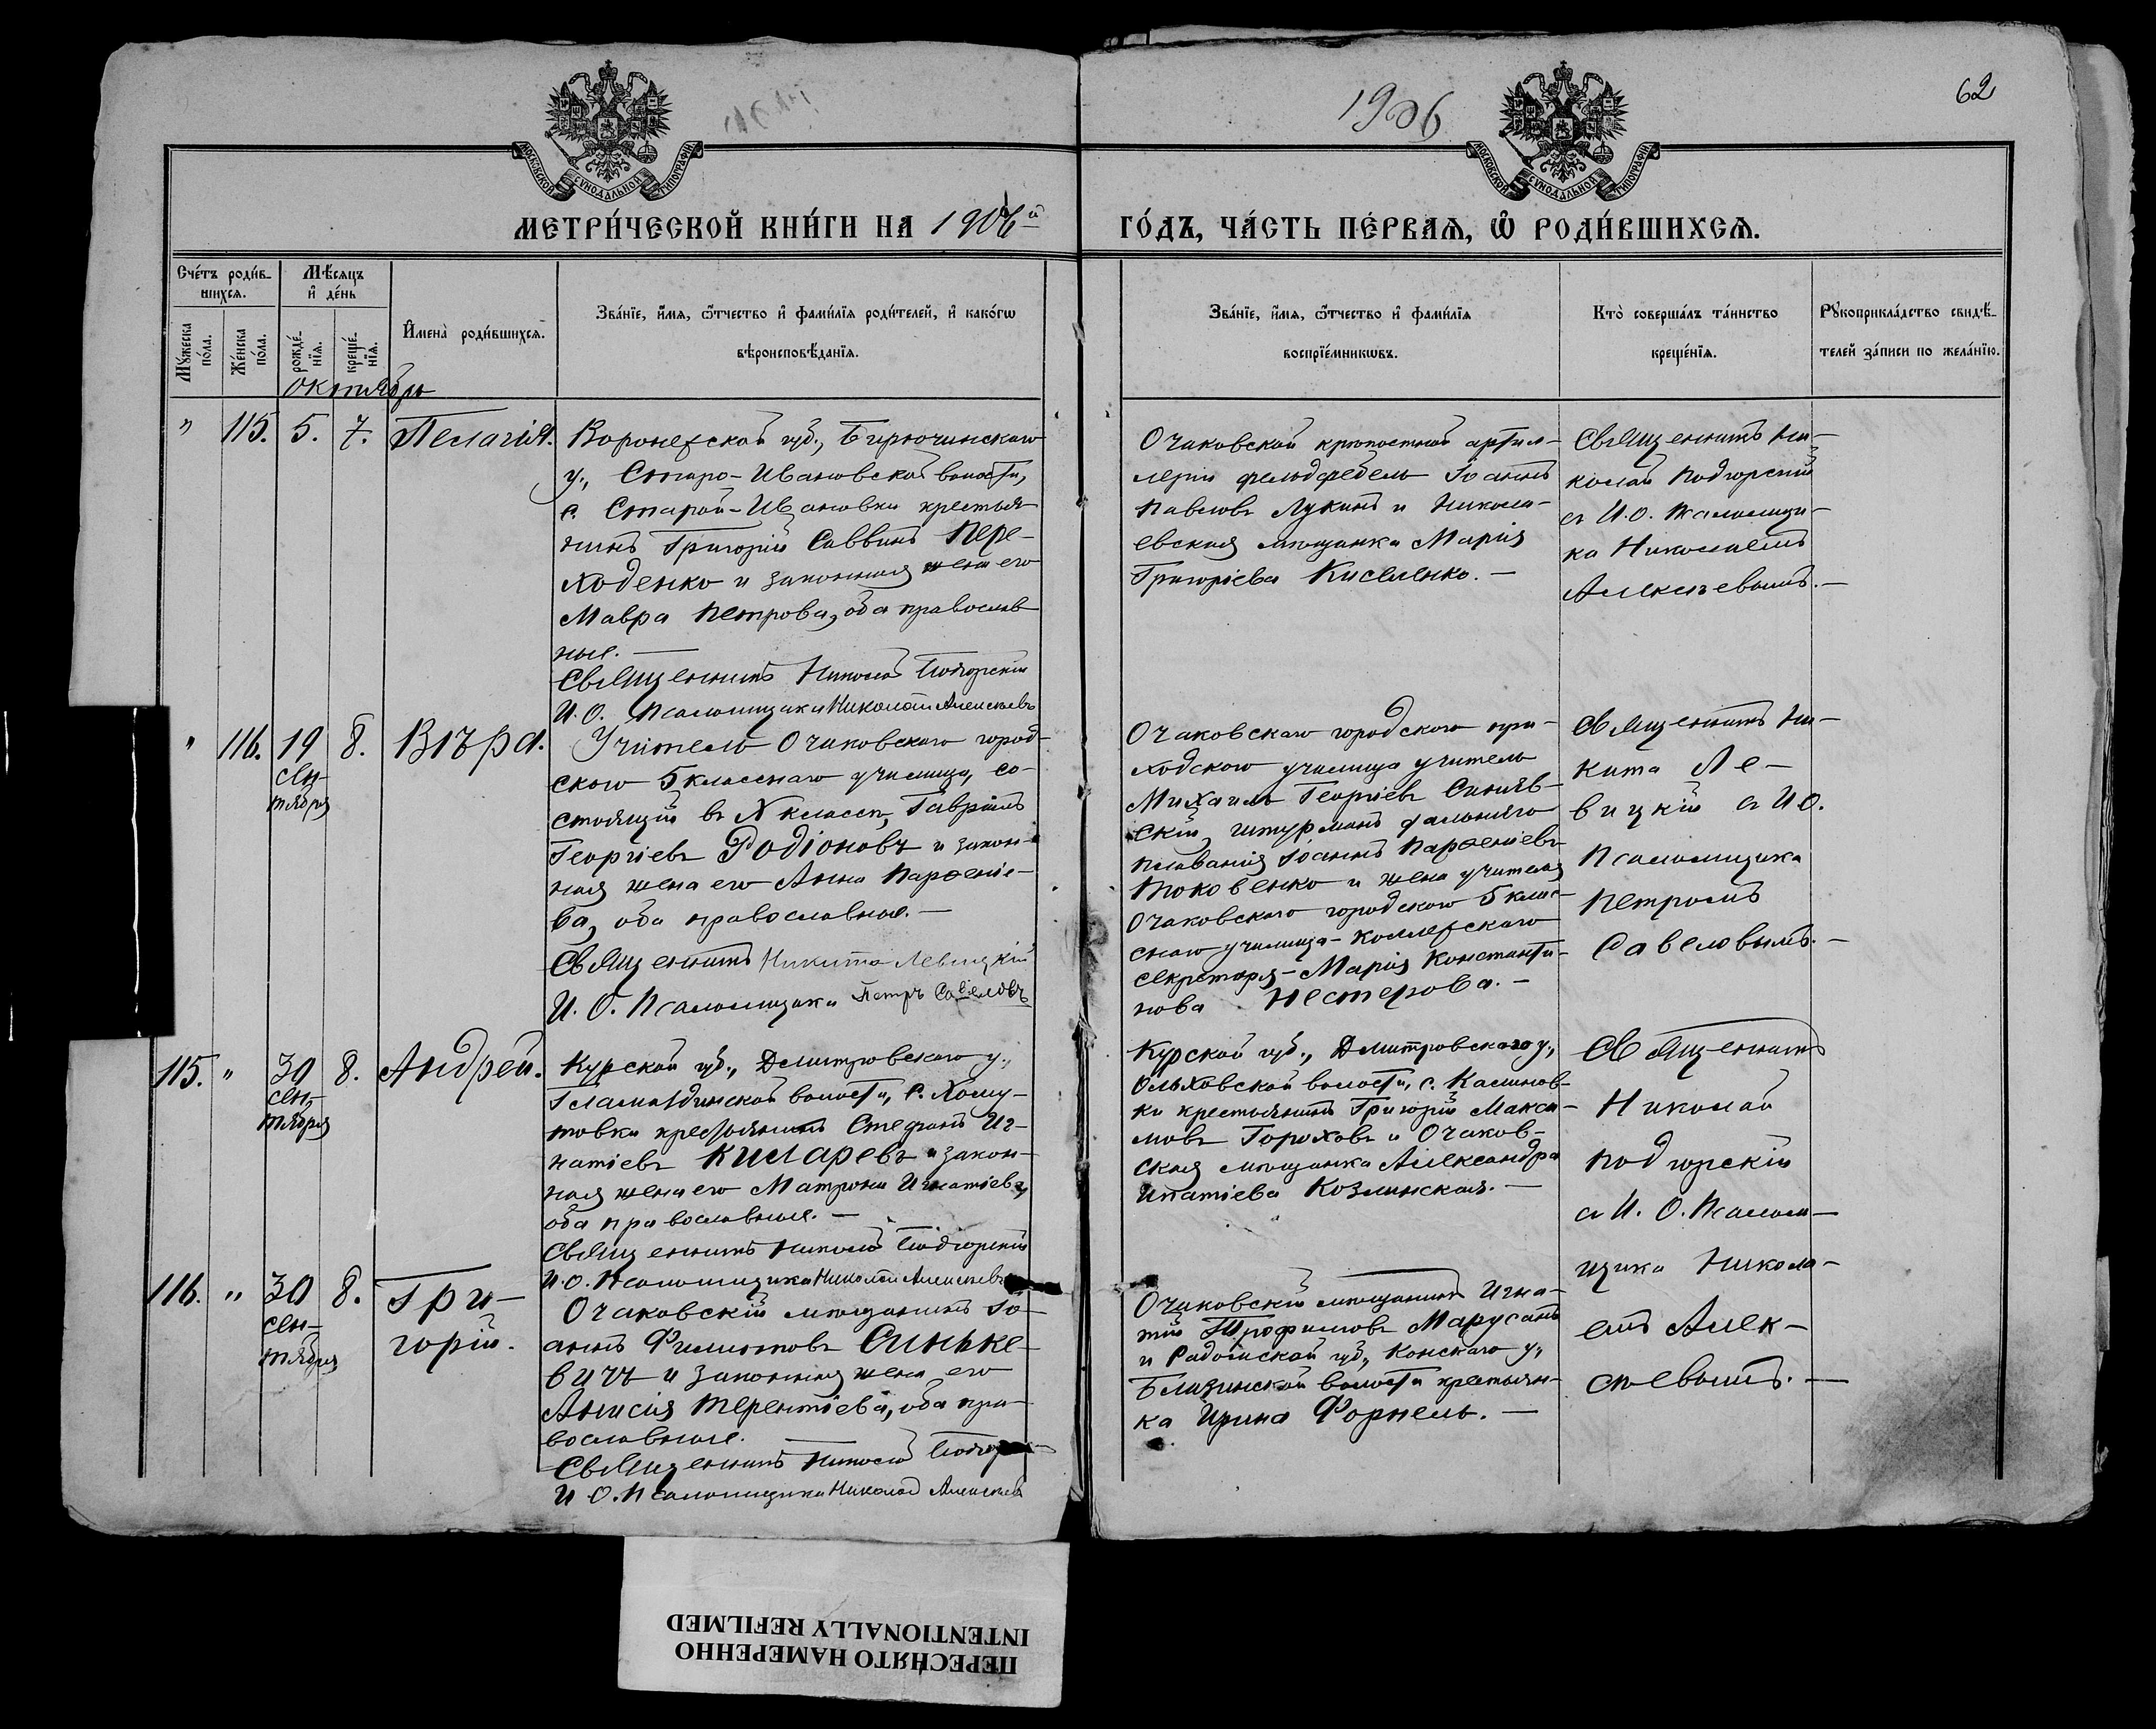 1906
62
МОСКОВСКОЙ СѴНОДАЛЬНОЙ ТИПОГРАФІИ
МОСКОВСКОЙ СѴНОДАЛЬНОЙ ТИПОГРАФІИ
МЕТРИ́ЧЕСКОЙ КНИ́ГИ НА 1906й
ГО́ДЪ, ЧА́СТЬ ПЕ́РВАѦ, Ѡ҆ РОДИ́ВШИХСѦ.
Сче́тъ роди́в-
шихсѧ.
Мꙋ́жеска
по́ла.
Же́нска
по́ла.
Мѣ́сѧцъ
и҆ де́нь
рожде́-
нїѧ.
креще́-
нїѧ.
И҆мена̀ роди́вшихсѧ.
Зва́нїе, и҆́мѧ, ѻ҆́тчество и҆ фами́лїѧ роди́телей, и҆ како́гѡ
вѣроисповѣ́данїѧ.
Зва́нїе, и҆́мѧ, ѻ҆́тчество и҆ фами́лїѧ
воспрїе́мникѡвъ.
Кто̀ соверша́лъ та́инство
креще́нїѧ.
Рꙋкоприкла́дство свидѣ́-
телей за́писи по жела́нїю.
октябрь
" 115. 5. 7. Пелагія.
Воронежской губ., Бирючинскаго
у., Старо-Ивановской волости,
с. Старой-Ивановки крестья-
нинъ Григорій Саввинъ Пере-
ходенко и законная жена его
Мавра Петрова, оба православ-
ные. —
Священникъ Николай Подгорскій
И. О. Псаломщика Николай Алексѣевъ
Очаковской крѣпостной артил-
леріи фельдфебель Іоаннъ
Павловъ Лукинъ и Никола-
евская мѣщанка Марія
Григоріева Кисленко. —
Священникъ Ни-
колай Подгорскій
съ И. О. Псаломщи-
ка Николаемъ
Алексѣевымъ. —
" 116. 19 8. Вѣра.
сен-
тября
Учитель Очаковскаго город-
ского 5 класснаго училища, со-
стоящій въ X классѣ, Гавріилъ
Георгіевъ Родіоновъ и закон-
ная жена его Анна Парѳеніе-
ва, оба православные. —
Священникъ Никита Левицкій
И. О. Псаломщика Петръ Савеловъ
Очаковскаго городского при-
ходского училища учитель
Михаилъ Георгіевъ Синяв-
скій, штурманъ дальняго
плаванія Іоаннъ Парѳеніевъ
Токовенко и жена учителя
Очаковскаго городского 5 клас-
снаго училища - коллежскаго
секретаря - Марія Константи-
нова Нестерова. —
Священникъ Ни-
кита Ле-
вицкій съ И. О.
Псаломщика
Петромъ
Савеловымъ. —
115. " 30 8. Андрей.
сен-
тября
Курской губ., Дмитровскаго у.,
волости, с. Хому-
товки крестьянинъ Стефанъ Иг-
натіевъ Киларевъ и закон-
ная жена его Матрона Игнатіева,
оба православные. —
Священникъ Николай Подгорскій
И. О. Псаломщика Николай Алексѣевъ
Курской губ., Дмитровскаго у.,
Ольховской волости, с. Калинов-
ки крестьянинъ Григорій Макси-
мовъ Гороховъ и Очаков-
ская мѣщанка Александра
Ипатіева Козлинская. —
Священникъ
Николай
Подгорскій
съ И. О. Псалом-
щика Никола-
емъ Алек-
сѣевымъ. —
116. " 30 8. Гри-
сен-
тября
горій.
Очаковскій мѣщанинъ Іо-
аннъ Филиповъ Синьке-
вичъ и законная жена его
Анисія Терентіева, оба пра-
вославные.
Священникъ Николай
И. О. Псаломщика Николай Алексѣевъ
Очаковскій мѣщанинъ Игна-
тій Трофимовъ Марусанъ
и Радомской губ., Конскаго у.,
Близинской волости крестьян-
ка Ирина Форнель. —
ПЕРЕСНЯТО НАМЕРЕННО
INTENTIONALLY REFILMED